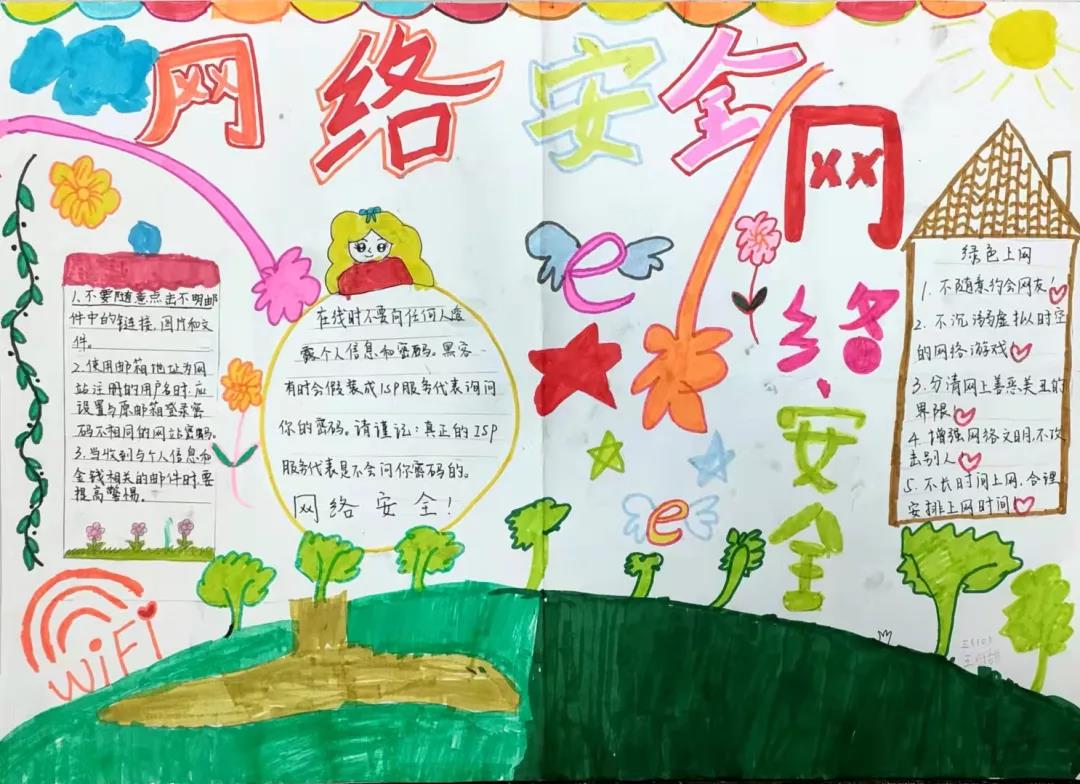 网络安全
1. 不要随意点击不明邮
件中的链接、图片和文
件。
2. 使用邮箱地址为网
站注册的用户名时，应
设置与原邮箱登录密
码不相同的网站密码。
3. 当收到与个人信息和
金钱相关的邮件时要
提高警惕。
在线时不要向任何人透
露个人信息和密码。黑客
有时会假装成ISP服务代表询问
你的密码。请谨记：真正的ISP
服务代表是不会问你密码的。
网络安全！
WiFi
e
e
网络安全
绿色上网
1. 不随意约会网友！
2. 不沉溺虚拟时空
的网络游戏
3. 分清网上善恶美丑的
界限
4. 增强网络文明，不攻
击别人
5. 不长时间上网，合理
安排上网时间